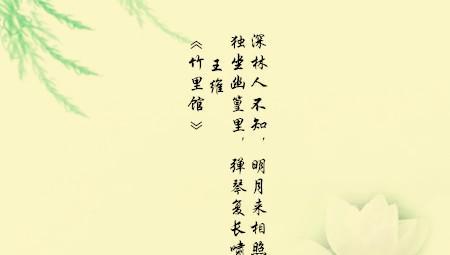 《竹里馆》
王维
独坐幽篁里，弹琴复长啸
深林人不知，明月来相照